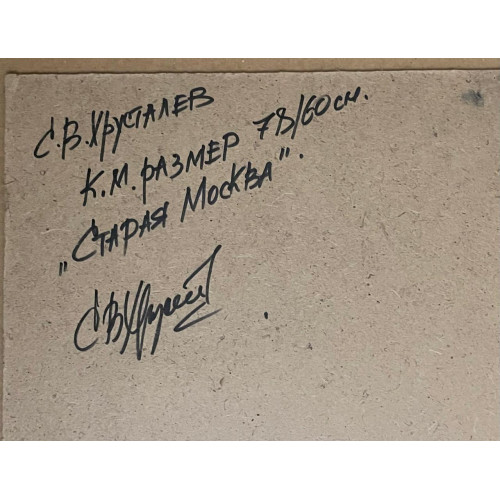 С.В.Хрусталев
К.М. размер 78/60 см.
„Старая Москва".
С В Хруст